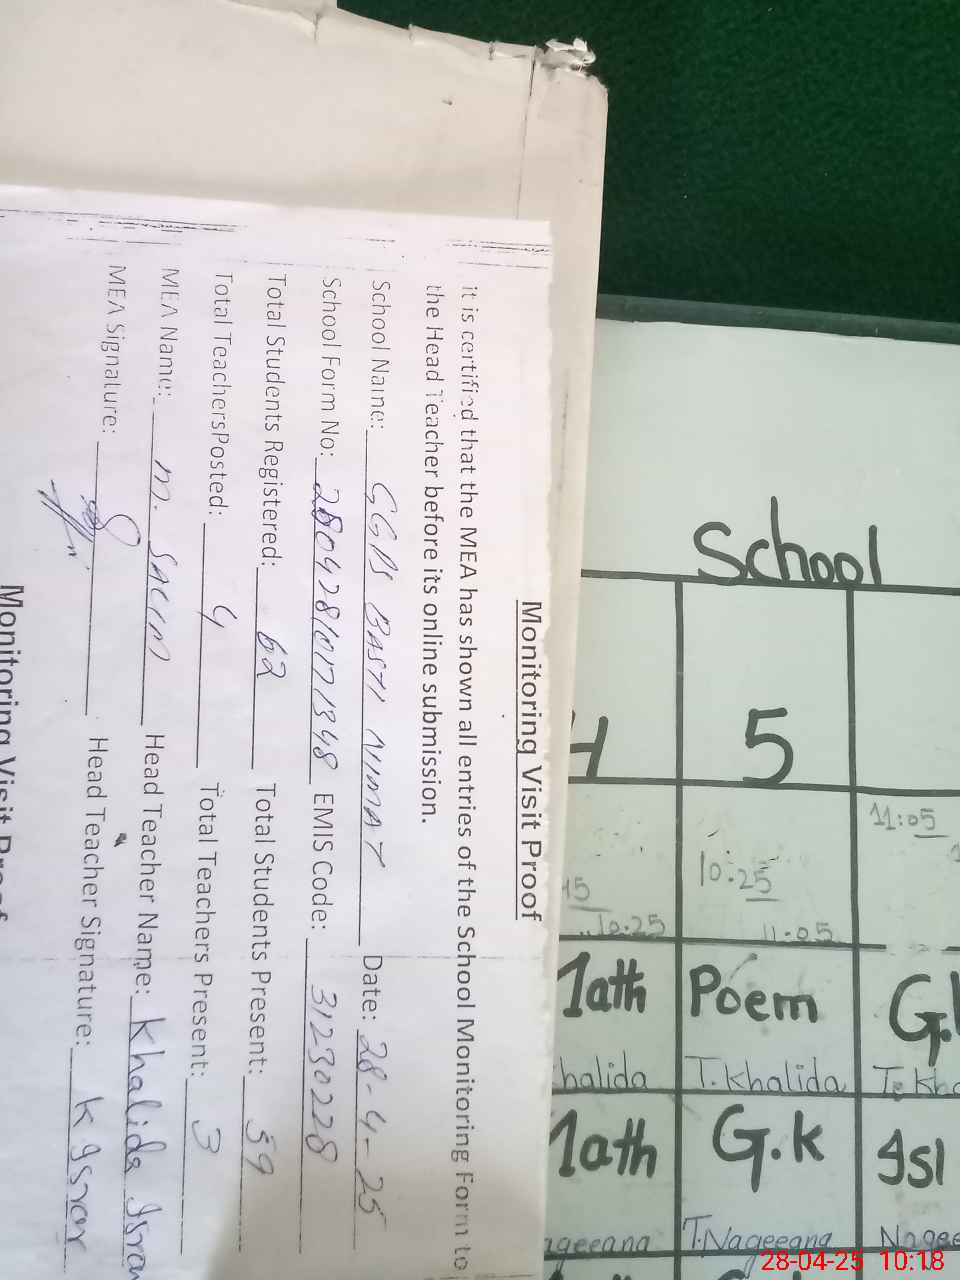 Monitoring Visit Proof
it is certified that the MEA has shown all entries of the School Monitoring Form to
the Head Teacher before its online submission.
School Name: GGPS BASTI NIMAT Date: 28-4-25
School Form No: 28042810171348 EMIS Code: 31230228
Total Students Registered: 62 Total Students Present: 59
Total TeachersPosted: 4 Total Teachers Present: 3
MEA Name: M. Salim Head Teacher Name: Khalida Israr
MEA Signature: Head Teacher Signature: K Israr
Monitoring Visit Proof
School
4 5
45 10.25 11:05
10.25 11:05
Math Poem G.
halida T.Khalida T. Kha
Math G.k Isl
ageeana T.Nageeana Nagee
28-04-25 10:18